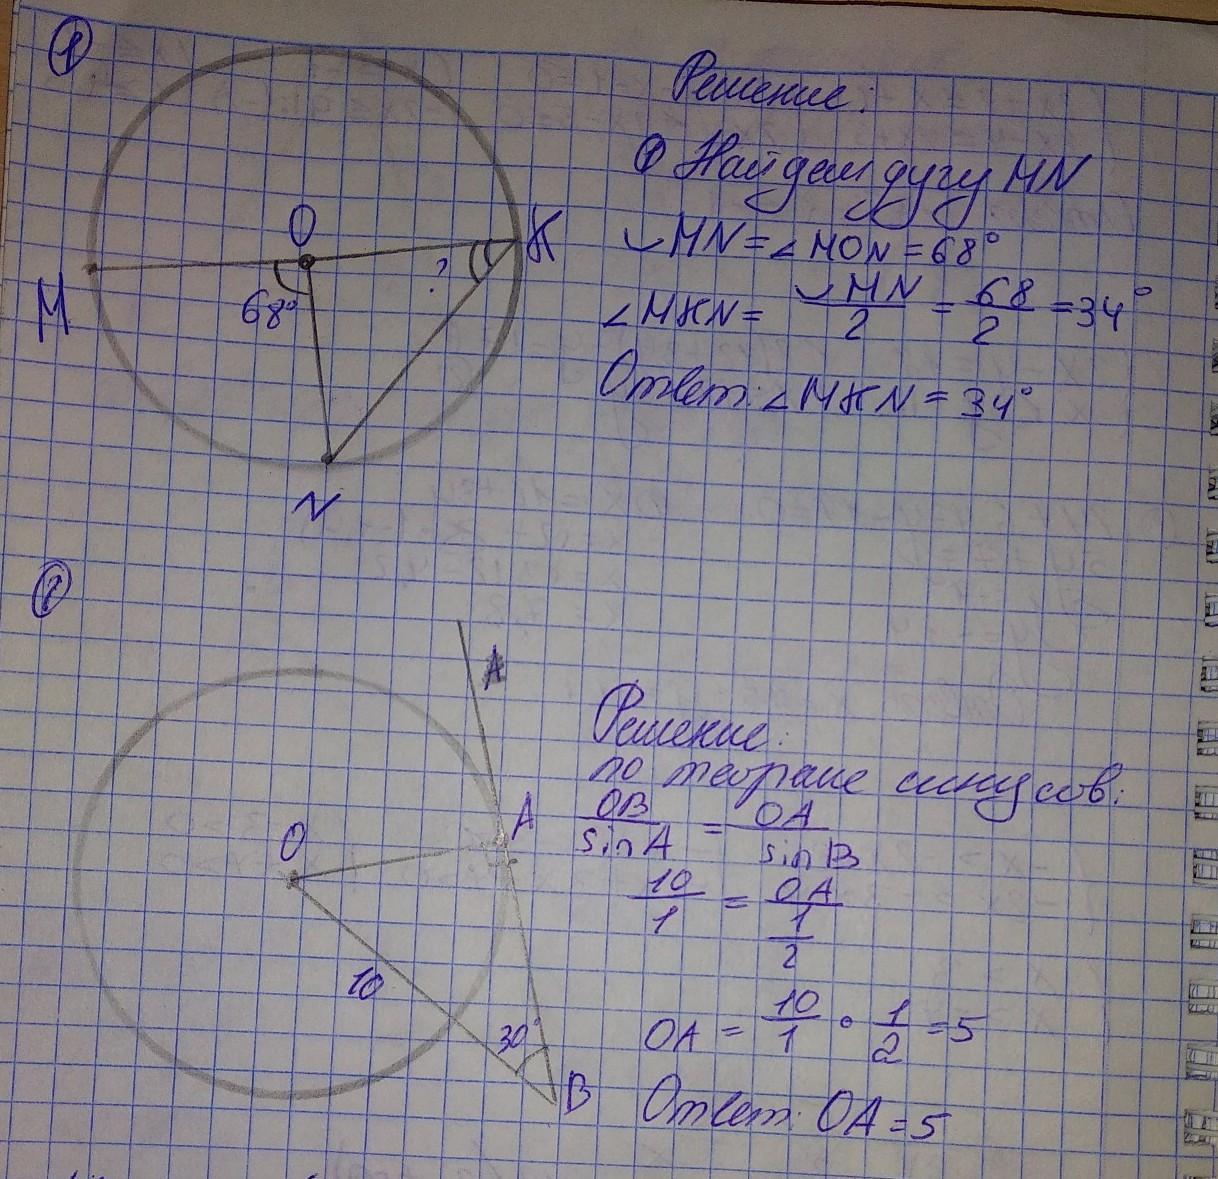 1
Решение:
① Найдем дугу MN
◡MN = ∠MON = 68°
∠MKN = ◡MN/2 = 68/2 = 34°
Ответ: ∠MKN = 34°
O
K
M
68°
?
N
2
A
Решение:
по теореме синусов:
OB/sinA = OA/sinB
10/1 = OA/(1/2)
OA = 10/1 • 1/2 = 5
Ответ: OA = 5
O
A
10
30°
B